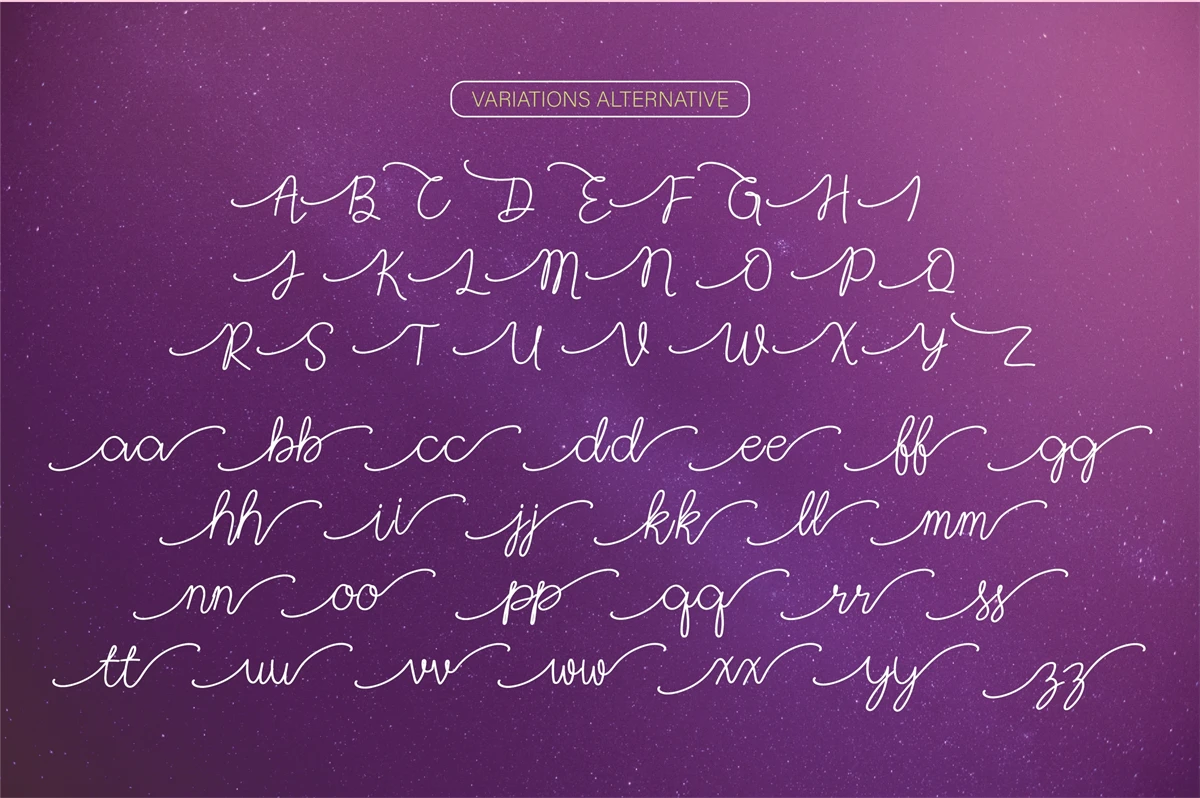 VARIATIONS ALTERNATIVE
A B C D E F G H I
J K L M N O P Q
R S T U V W X Y Z
aa bb cc dd ee ff gg
hh ii jj kk ll mm
nn oo pp qq rr ss
tt uu vv ww xx yy zz